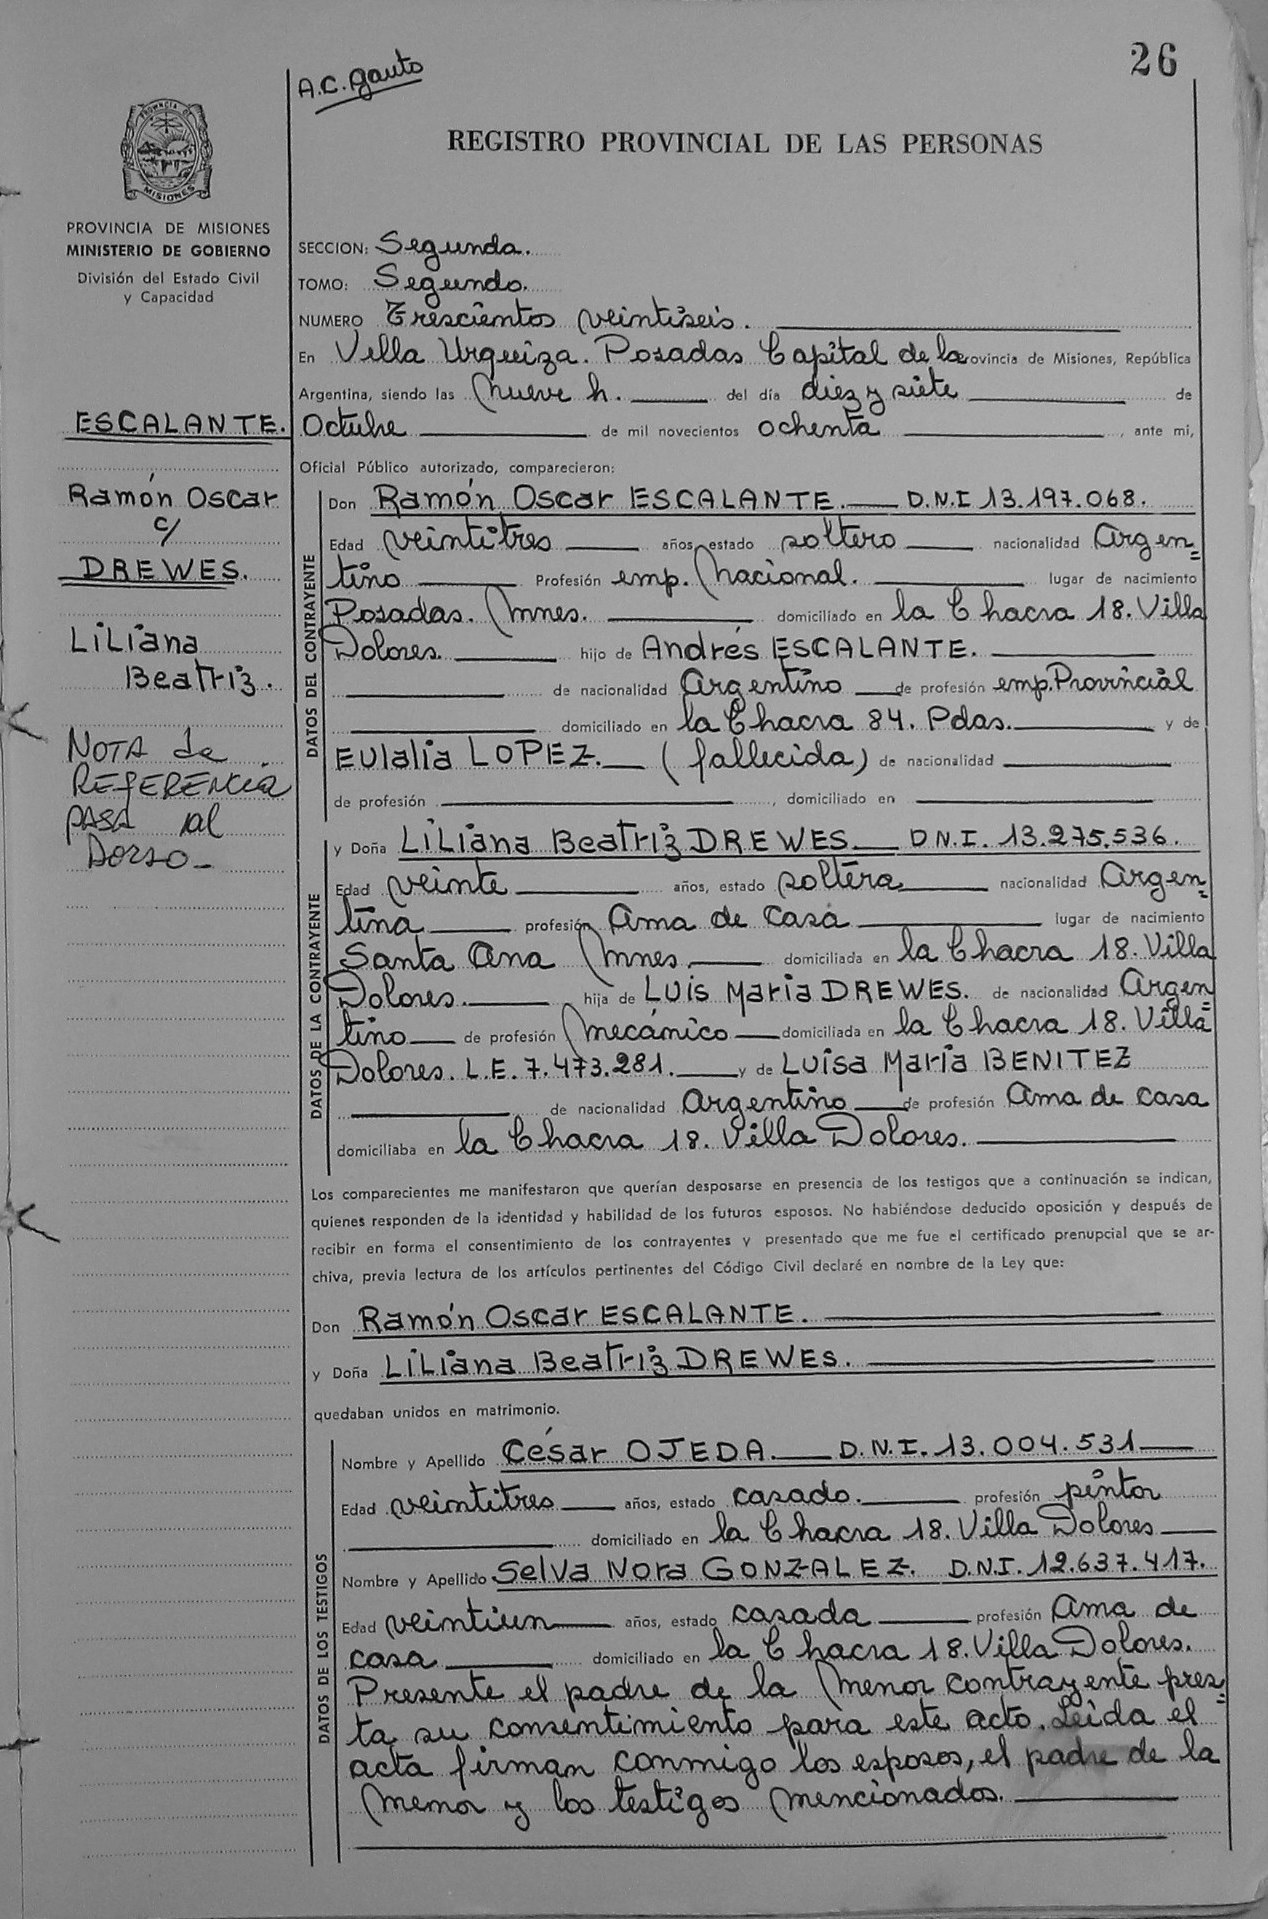 26
A.C. Gauto
REGISTRO PROVINCIAL DE LAS PERSONAS
PROVINCIA DE
MISIONES
PROVINCIA DE MISIONES
MINISTERIO DE GOBIERNO
División del Estado Civil
y Capacidad
ESCALANTE.
Ramón Oscar
c/
DREWES.
Liliana
Beatriz.
NOTA de
REFERENCIA
PASA al
Dorso_
SECCION: Segunda.
TOMO: Segundo.
NUMERO Trescientos veintiseis.
En Villa Urquiza. Posadas Capital de la rovincia de Misiones, República
Argentina, siendo las nueve h. del día diez y siete de
Octubre de mil novecientos ochenta, ante mi,
Oficial Público autorizado, comparecieron:
DATOS DEL CONTRAYENTE
Don Ramón Oscar ESCALANTE. D.N.I 13.197.068.
Edad veintitres años, estado soltero nacionalidad Argen=
tino Profesión emp. Nacional. lugar de nacimiento
Posadas. Mnes. domiciliado en la Chacra 18. Villa
Dolores. hijo de Andrés ESCALANTE.
de nacionalidad Argentino de profesión emp. Provincial
domiciliado en la Chacra 84. Pdas. y de
Eulalia LOPEZ. (fallecida) de nacionalidad
de profesión , domiciliado en
DATOS DE LA CONTRAYENTE
y Doña Liliana Beatriz DREWES. D.N.I. 13.275.536.
Edad veinte años, estado soltera nacionalidad Argen=
tina profesión Ama de casa lugar de nacimiento
Santa Ana Mnes domiciliada en la Chacra 18. Villa
Dolores. hija de Luis Maria DREWES. de nacionalidad Argen=
tino de profesión mecánico domiciliada en la Chacra 18. Villa
Dolores. L.E. 7.473.281. y de Luisa Maria BENITEZ
de nacionalidad Argentino de profesión Ama de casa
domiciliaba en la Chacra 18. Villa Dolores.
Los comparecientes me manifestaron que querían desposarse en presencia de los testigos que a continuación se indican,
quienes responden de la identidad y habilidad de los futuros esposos. No habiéndose deducido oposición y después de
recibir en forma el consentimiento de los contrayentes y presentado que me fue el certificado prenupcial que se ar-
chiva, previa lectura de los artículos pertinentes del Código Civil declaré en nombre de la Ley que:
Don Ramón Oscar ESCALANTE.
y Doña Liliana Beatriz DREWES.
quedaban unidos en matrimonio.
DATOS DE LOS TESTIGOS
Nombre y Apellido César OJEDA. D.N.I. 13.004.531
Edad veintitres años, estado casado. profesión pintor
domiciliado en la Chacra 18. Villa Dolores
Nombre y Apellido Selva Nora GONZALEZ. D.N.I. 12.637.417.
Edad veintiun años, estado casada profesión Ama de
casa domiciliado en la Chacra 18. Villa Dolores.
Presente el padre de la menor contrayente pres=
ta su consentimiento para este acto. Leida el
acta firman conmigo los esposos, el padre de la
menor y los testigos mencionados.